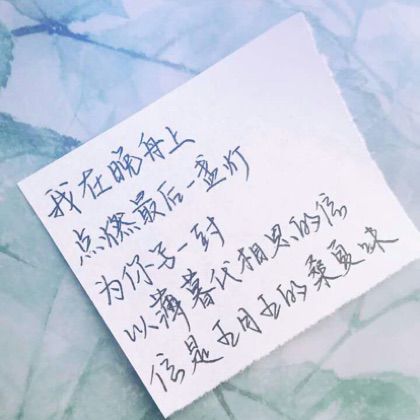 我在晚舟上
点燃最后一盏灯
为你写一封
以薄暮代相思的信
信是五月五的桑夏味